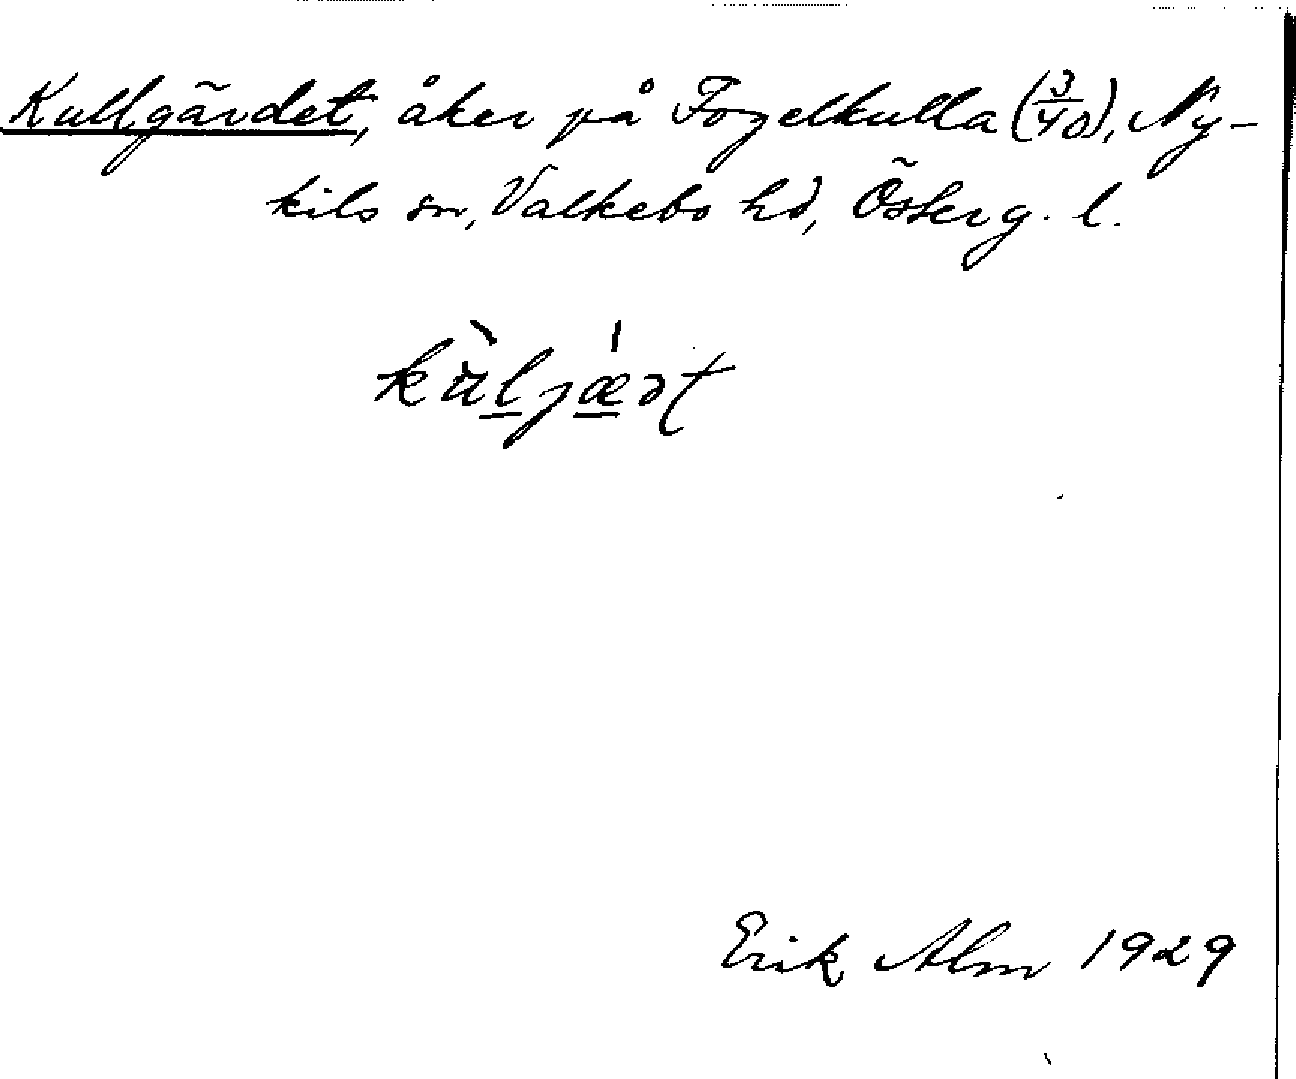 Kullgärdet, åker på Fogelkulla (3/40), Ny-
kils sn, Valkebo hd, Österg. l.
kùljǽət
Erik Alm 1929